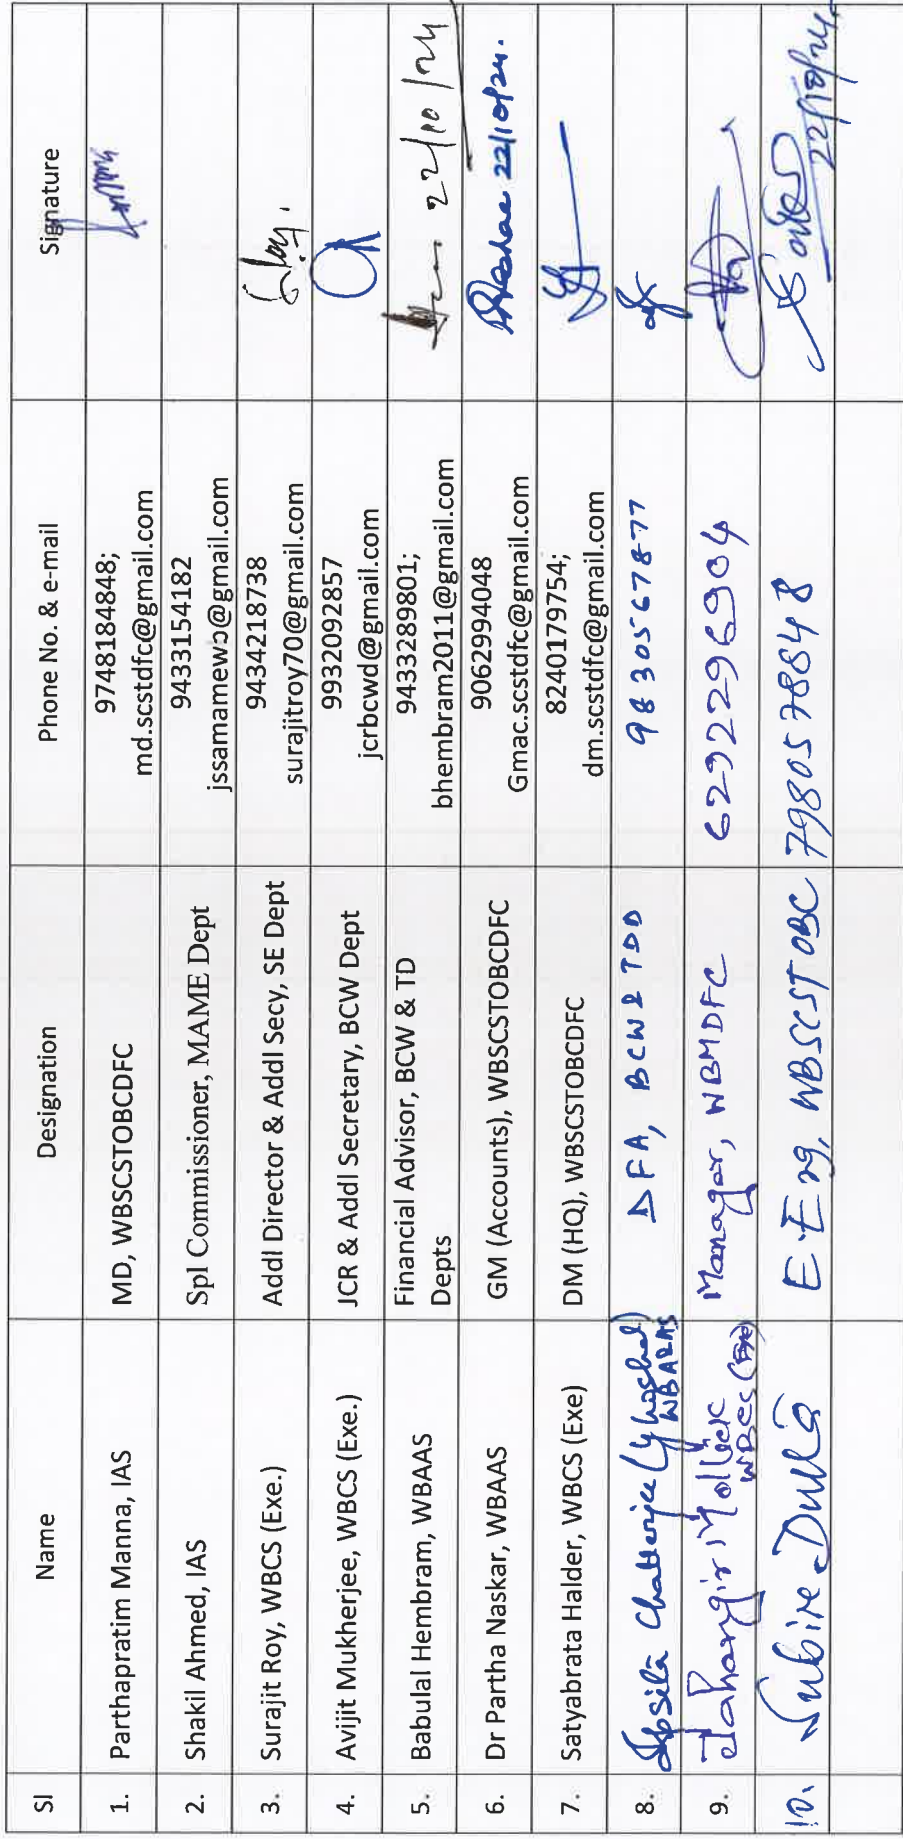 Sl Name Designation Phone No. & e-mail Signature
1. Parthapratim Manna, IAS MD, WBSCSTOBCDFC 9748184848;
md.scstdfc@gmail.com
2. Shakil Ahmed, IAS Spl Commissioner, MAME Dept 9433154182
jssamamewb@gmail.com
3. Surajit Roy, WBCS (Exe.) Addl Director & Addl Secy, SE Dept 9434218738
surajitroy70@gmail.com
4. Avijit Mukherjee, WBCS (Exe.) JCR & Addl Secretary, BCW Dept 9932092857
jcrbcwd@gmail.com
5. Babulal Hembram, WBAAS Financial Advisor, BCW & TD 9433289801; 22/10/24
Depts bhembram2011@gmail.com
6. Dr Partha Naskar, WBAAS GM (Accounts), WBSCSTOBCDFC 9062994048 22/10/24.
Gmac.scstdfc@gmail.com
7. Satyabrata Halder, WBCS (Exe) DM (HQ), WBSCSTOBCDFC 8240179754;
dm.scstdfc@gmail.com
8. Ipsita Chatterjee (Ghoshal) DFA, BCW & TDD 9830567877
WBA&AS
9. Jahangir Mollick Manager, WBMDFC 6292296904
WBCS (Exe)
10. Subir Dutta E.Eng, WBSCSTOBC 7980578848
22/10/24